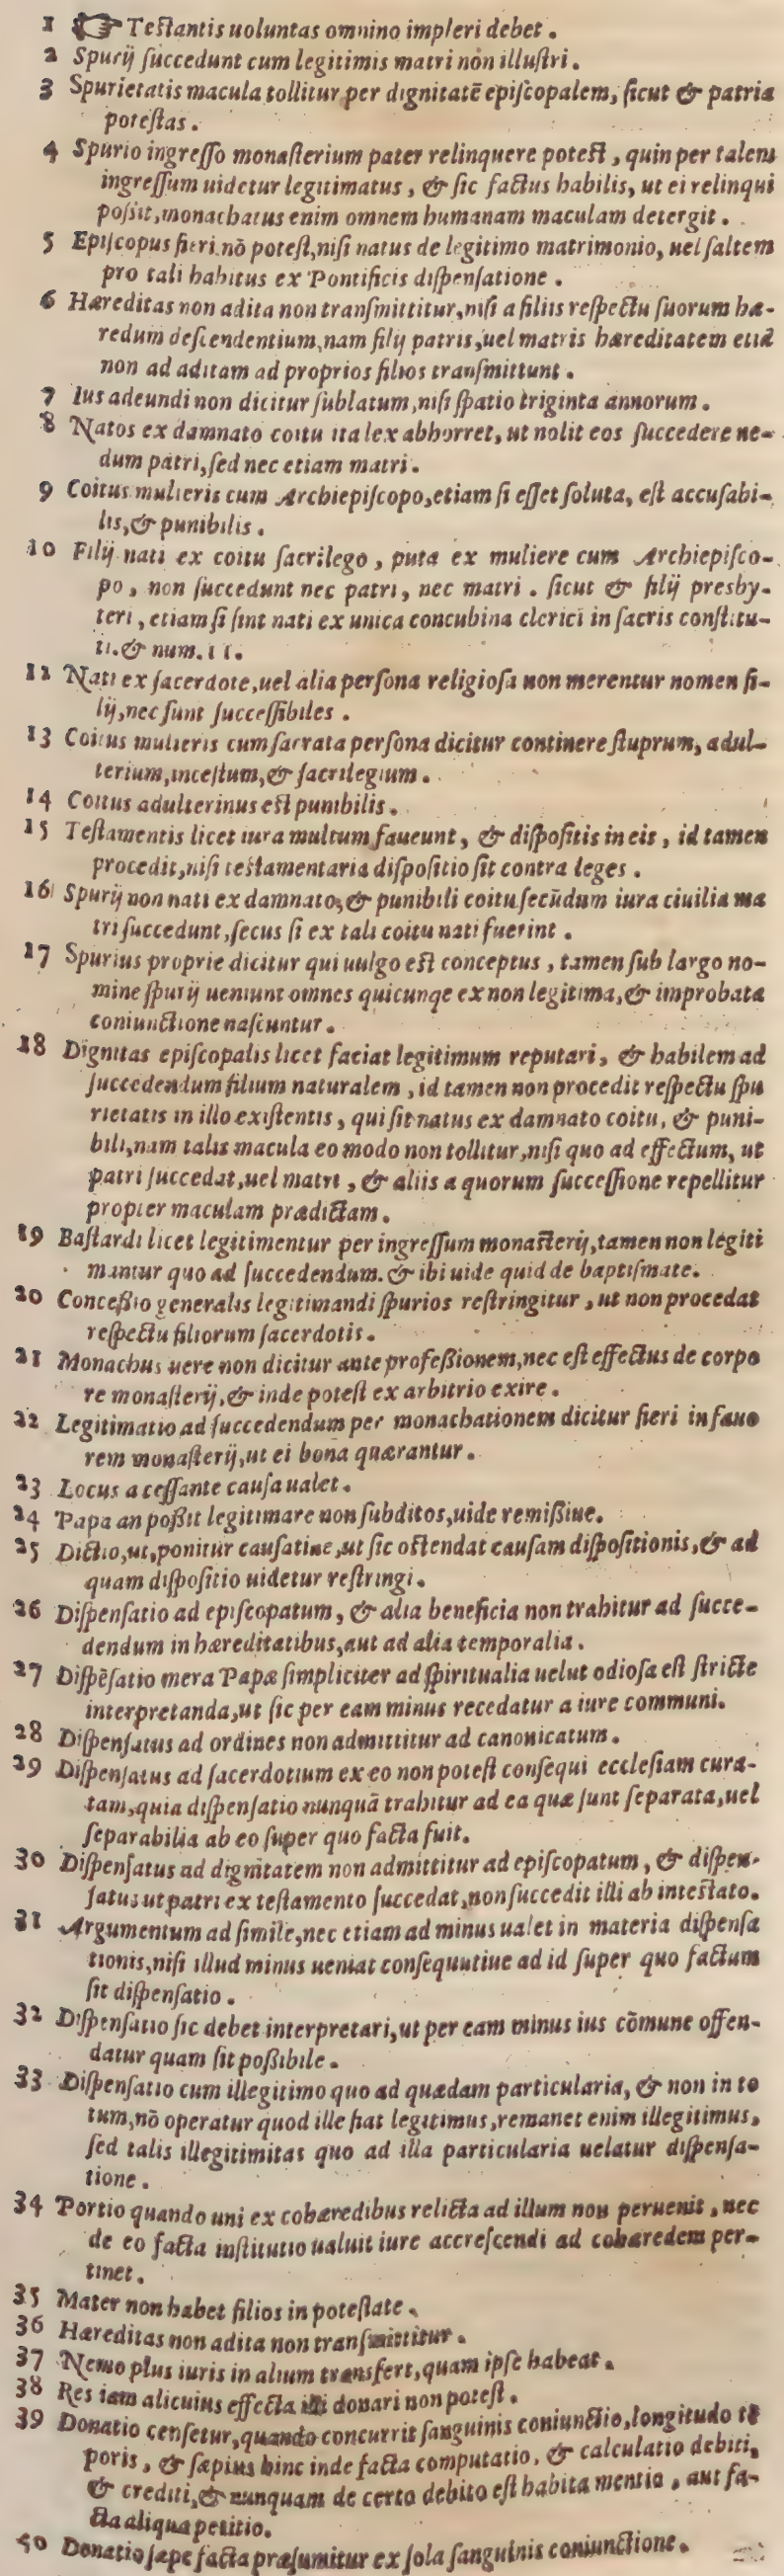 1 ☞ Testantis uoluntas omnino impleri debet.
2 Spurij succedunt cum legitimis matri non illustri.
3 Spurietatis macula tollitur per dignitatē episcopalem, sicut & patria
potestas.
4 Spurio ingresso monasterium pater relinquere potest, quin per talem
ingressum uidetur legitimatus, & sic factus habilis, ut ei relinqui
possit, monachatus enim omnem humanam maculam detergit.
5 Episcopus fieri nō potest, nisi natus de legitimo matrimonio, uel saltem
pro tali habitus ex Pontificis dispensatione.
6 Hæreditas non adita non transmittitur, nisi a filiis respectu suorum hæ-
redum descendentium, nam filij patris, uel matris hæreditatem etiā
non ad aditam ad proprios filios transmittunt.
7 Ius adeundi non dicitur sublatum, nisi spatio triginta annorum.
8 Natos ex damnato coitu ita lex abhorret, ut nolit eos succedere ne-
dum patri, sed nec etiam matri.
9 Coitus mulieris cum Archiepiscopo, etiam si esset soluta, est accusabi-
lis, & punibilis.
10 Filij nati ex coitu sacrilego, puta ex muliere cum Archiepisco-
po, non succedunt nec patri, nec matri. sicut & filij presby-
teri, etiam si sint nati ex unica concubina clerici in sacris constitu-
ti. & num. 11.
12 Nati ex sacerdote, uel alia persona religiosa non merentur nomen fi-
lij, nec sunt successibiles.
13 Coitus mulieris cum sacrata persona dicitur continere stuprum, adul-
terium, incestum, & sacrilegium.
14 Coitus adulterinus est punibilis.
15 Testamentis licet iura multum faueunt, & dispositis in eis, id tamen
procedit, nisi testamentaria dispositio sit contra leges.
16 Spurij non nati ex damnato, & punibili coitu secūdum iura ciuilia ma
tri succedunt, secus si ex tali coitu nati fuerint.
17 Spurius proprie dicitur qui uulgo est conceptus, tamen sub largo no-
mine spurij ueniunt omnes quicunqe ex non legitima, & improbata
coniunctione nascuntur.
18 Dignitas episcopalis licet faciat legitimum reputari, & habilem ad
succedendum filium naturalem, id tamen non procedit respectu spu
rietatis in illo existentis, qui sit natus ex damnato coitu, & puni-
bili, nam talis macula eo modo non tollitur, nisi quo ad effectum, ut
patri succedat, uel matri, & aliis a quorum successione repellitur
propter maculam prædictam.
19 Bastardi licet legitimentur per ingressum monasterij, tamen non legiti
mantur quo ad succedendum. & ibi uide quid de baptismate.
20 Concessio generalis legitimandi spurios restringitur, ut non procedat
respectu filiorum sacerdotis.
21 Monachus uere non dicitur ante professionem, nec est effectus de corpo
re monasterij, & inde potest ex arbitrio exire.
22 Legitimatio ad succedendum per monachationem dicitur fieri in fauo
rem monasterij, ut ei bona quærantur.
23 Locus a cessante causa ualet.
24 Papa an possit legitimare non subditos, uide remissiue.
25 Dictio, ut, ponitur causatiue, ut sic ostendat causam dispositionis, & ad
quam dispositio uidetur restringi.
26 Dispensatio ad episcopatum, & alia beneficia non trahitur ad succe-
dendum in hæreditatibus, aut ad alia temporalia.
27 Dispēsatio mera Papæ simpliciter ad spiritualia uelut odiosa est stricte
interpretanda, ut sic per eam minus recedatur a iure communi.
28 Dispensatus ad ordines non admittitur ad canonicatum.
29 Dispensatus ad sacerdotium ex eo non potest consequi ecclesiam cura-
tam, quia dispensatio nunquā trahitur ad ea quæ sunt separata, uel
separabilia ab eo super quo facta fuit.
30 Dispensatus ad dignitatem non admittitur ad episcopatum, & dispen-
satus ut patri ex testamento succedat, non succedit illi ab intestato.
31 Argumentum ad simile, nec etiam ad minus ualet in materia dispensa
tionis, nisi illud minus ueniat consequutiue ad id super quo factum
sit dispensatio.
32 Dispensatio sic debet interpretari, ut per eam minus ius cōmune offen-
datur quam sit possibile.
33 Dispensatio cum illegitimo quo ad quædam particularia, & non in to
tum, nō operatur quod ille fiat legitimus, remanet enim illegitimus,
sed talis illegitimitas quo ad illa particularia uelatur dispensa-
tione.
34 Portio quando uni ex cohæredibus relicta ad illum non peruenit, nec
de eo facta institutio ualuit iure accrescendi ad cohæredem per-
tinet.
35 Mater non habet filios in potestate.
36 Hæreditas non adita non transmittitur.
37 Nemo plus iuris in alium transfert, quam ipse habeat.
38 Res iam alicuius effecta illi donari non potest.
39 Donatio censetur, quando concurrit sanguinis coniunctio, longitudo tē
poris, & sæpius hinc inde facta computatio, & calculatio debiti,
& crediti, & nunquam de certo debito est habita mentio, aut fa-
cta aliqua petitio.
40 Donatio sæpe facta præsumitur ex sola sanguinis coniunctione.